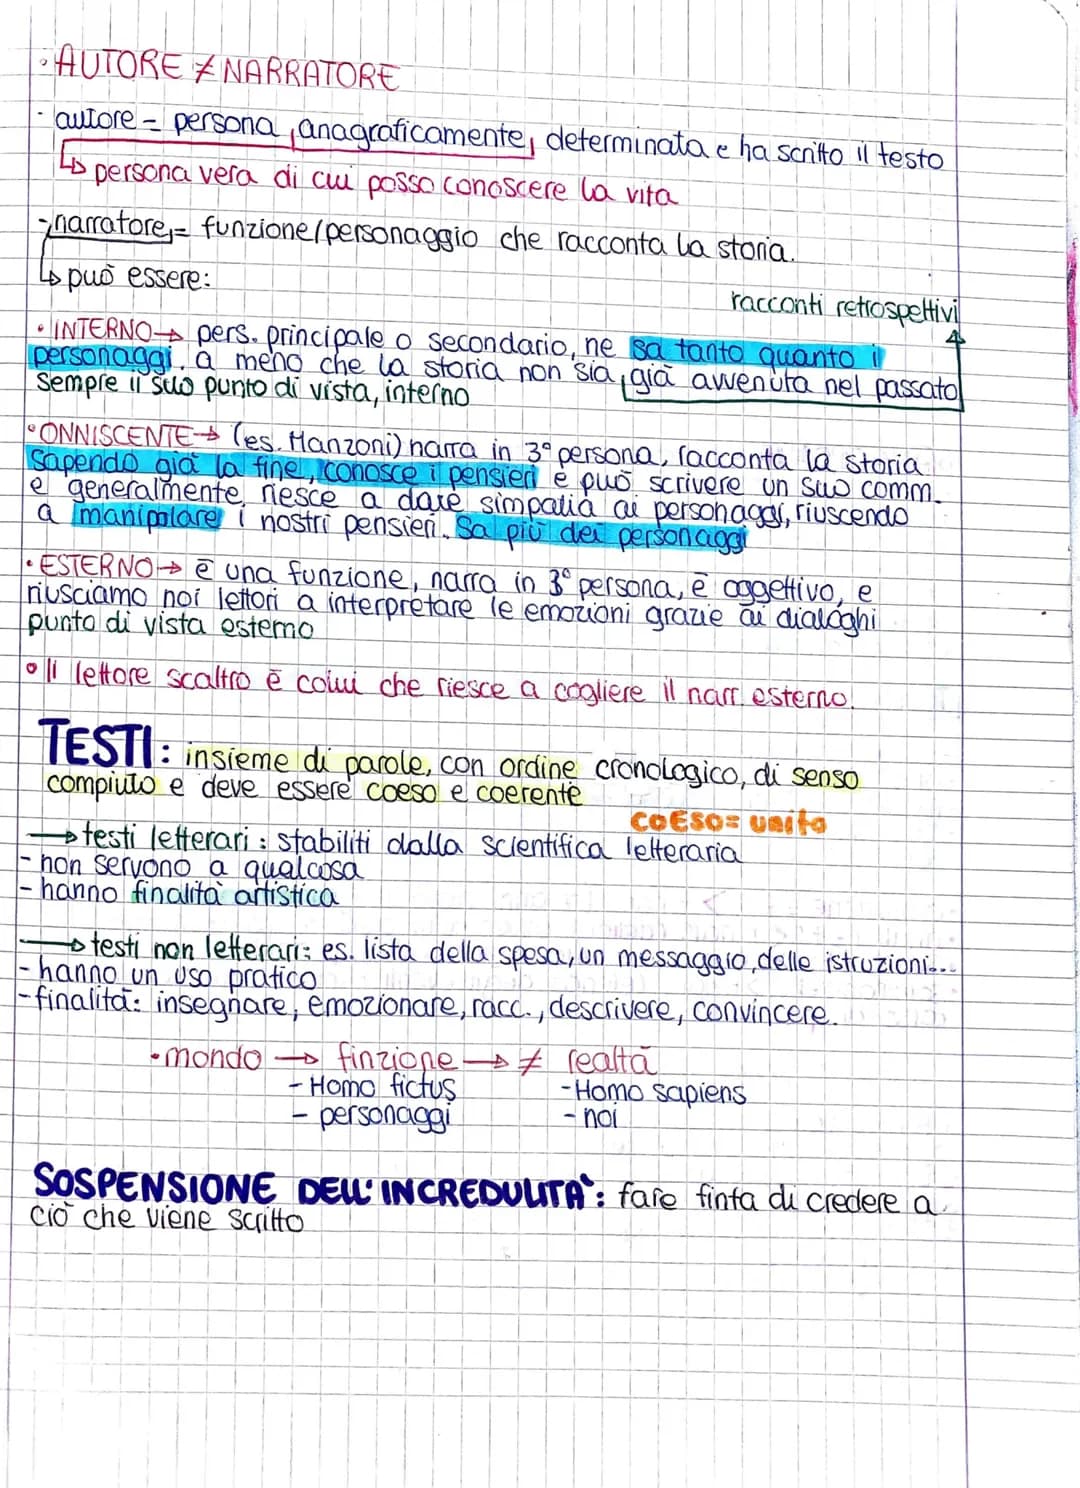 · AUTORE ≠ NARRATORE
- autore = persona anagraficamente determinata e ha scritto il testo
↳ persona vera di cui posso conoscere la vita
- narratore = funzione/personaggio che racconta la storia.
↳ può essere:
racconti retrospettivi
• INTERNO → pers. principale o secondario, ne sa tanto quanto i
personaggi. a meno che la storia non sia già avvenuta nel passato
Sempre il suo punto di vista, interno
• ONNISCENTE → (es. Manzoni) narra in 3° persona, racconta la storia
sapendo già la fine, conosce i pensieri e può scrivere un suo comm.
e generalmente riesce a dare simpatia ai personaggi, riuscendo
a manipolare i nostri pensieri. Sa più dei personaggi
• ESTERNO → è una funzione, narra in 3° persona, è oggettivo, e
riusciamo noi lettori a interpretare le emozioni grazie ai dialoghi
punto di vista esterno
• Il lettore scaltro è colui che riesce a cogliere il narr. esterno.
TESTI: insieme di parole, con ordine cronologico, di senso
compiuto e deve essere coeso e coerente
COESO= unito
→ testi letterari: stabiliti dalla scientifica letteraria
- non servono a qualcosa
- hanno finalità artistica
→ testi non letterari: es. lista della spesa, un messaggio, delle istruzioni...
- hanno un uso pratico
- finalità: insegnare, emozionare, racc., descrivere, convincere.
• mondo → finzione → ≠ realtà
- Homo fictus - Homo sapiens
- personaggi - noi
SOSPENSIONE DELL'INCREDULITÀ: fare finta di credere a
ciò che viene scritto